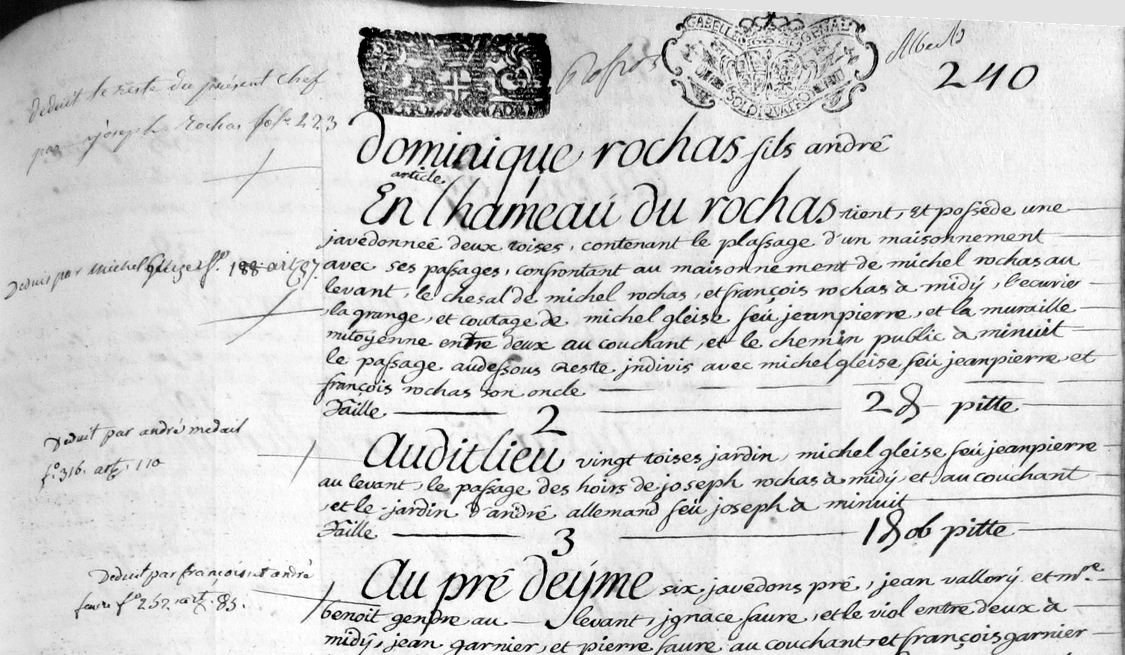 240
deduit le reste du présent chef
par joseph rochas fol. 223
dominique rochas fils andré
article
En l'hameau du rochas tient, et possède une
javedonneé deux toises, contenant le plassage d'un maisonnement
avec ses passages, confrontant au maisonnement de michel rochas au
Deduit par Michel gleize fo. 188 art. 87.
levant, le chesal de michel rochas, et françois rochas à midÿ, l'ecurier
la grange, et coutage de michel gleise feü jeanpierre, et la muraille
mitoÿenne entre deux au couchant, et le chemin public à minuit
le passage audessous reste jndivis avec michel gleise feü jeanpierre et
françois rochas son oncle
Taille 2 pitte
2
Deduit par andré medail
fo. 316. art. 110
Auditlieu vingt toises jardin, michel gleise feü jeanpierre
au levant, le passage des hoirs de joseph rochas à midÿ, et au couchant
, et le jardin d'andré allemand feü joseph à minuit
Taille 1 ob pitte
3
Deduit par françois et andré
faure fo. 252. art. 85.
Au pré deÿme six javedons pré, jean vallorÿ et mre.
benoit gendre au levant, jgnace faure, et le viol entre deux à
midÿ, jean garnier, et pierre faure au couchant et françois garnier